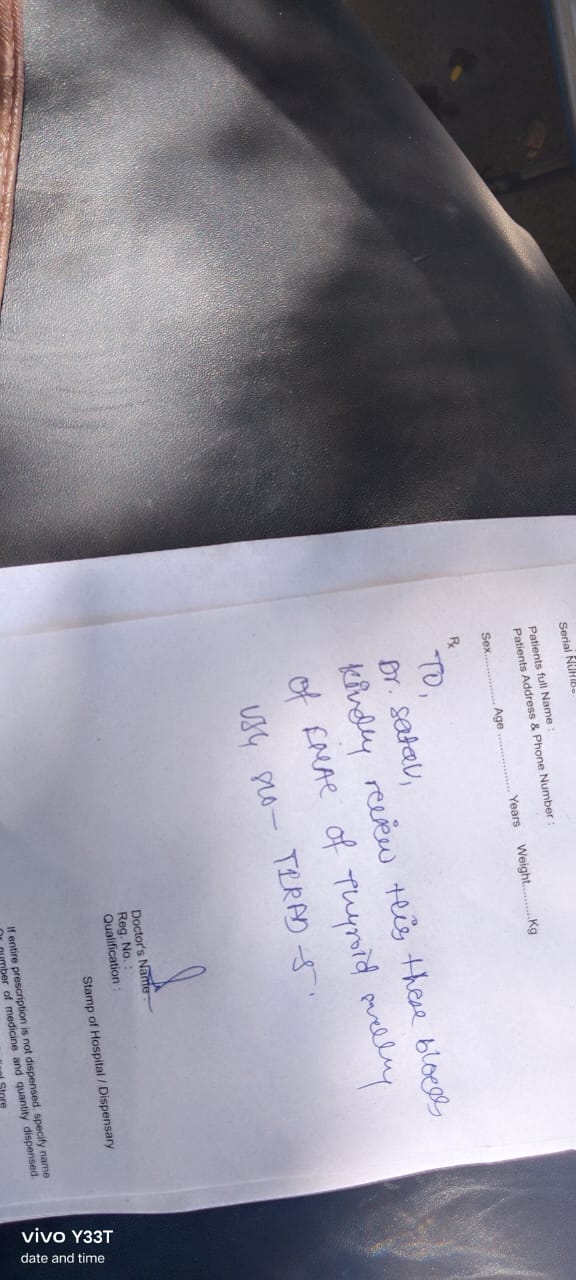 Serial Numbe
Patients full Name :
Patients Address & Phone Number :
Sex.............. Age .............. Years Weight..........Kg
Rx
TO,
Dr.
Kindly review this these blocks
of FNAC of Thyroid swelling
USG s/o - TIRAD-5.
Doctor's Name :
Reg. No. :
Qualification :
Stamp of Hospital / Dispensary
If entire prescription is not dispensed. specify name
Or number of medicine and quantity dispensed.
Store
vivo Y33T
date and time